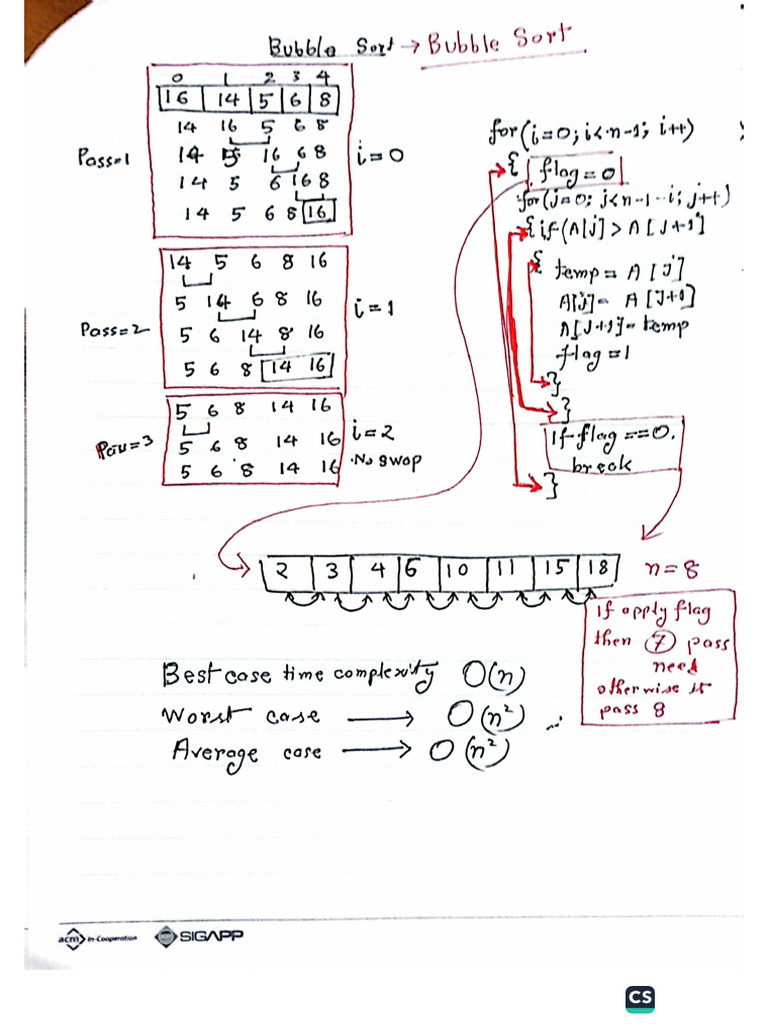 Bubble Sort → Bubble Sort
0 1 2 3 4
16 14 5 6 8
Pass=1
14 16 5 6 8
14 5 16 6 8
14 5 6 16 8
14 5 6 8 16
i=0
Pass=2
14 5 6 8 16
5 14 6 8 16
5 6 14 8 16
5 6 8 14 16
i=1
Pass=3
5 6 8 14 16
5 6 8 14 16
5 6 8 14 16
i=2
No swap
for(i=0; i<n-1; i++)
{ flag=0
for(j=0; j<n-1-i; j++)
{ if(A[j] > A[J+1]
{ temp = A[J]
A[j] = A[J+1]
A[J+1] = temp
flag=1
}
}
if flag==0.
break
}
2 3 4 6 10 11 15 18 n=8
If apply flag
then 7 pass
need
otherwise it
pass 8
Best case time complexity O(n)
Worst case → O(n²)
Average case → O(n²)
acm In-Cooperation SIGAPP
CS